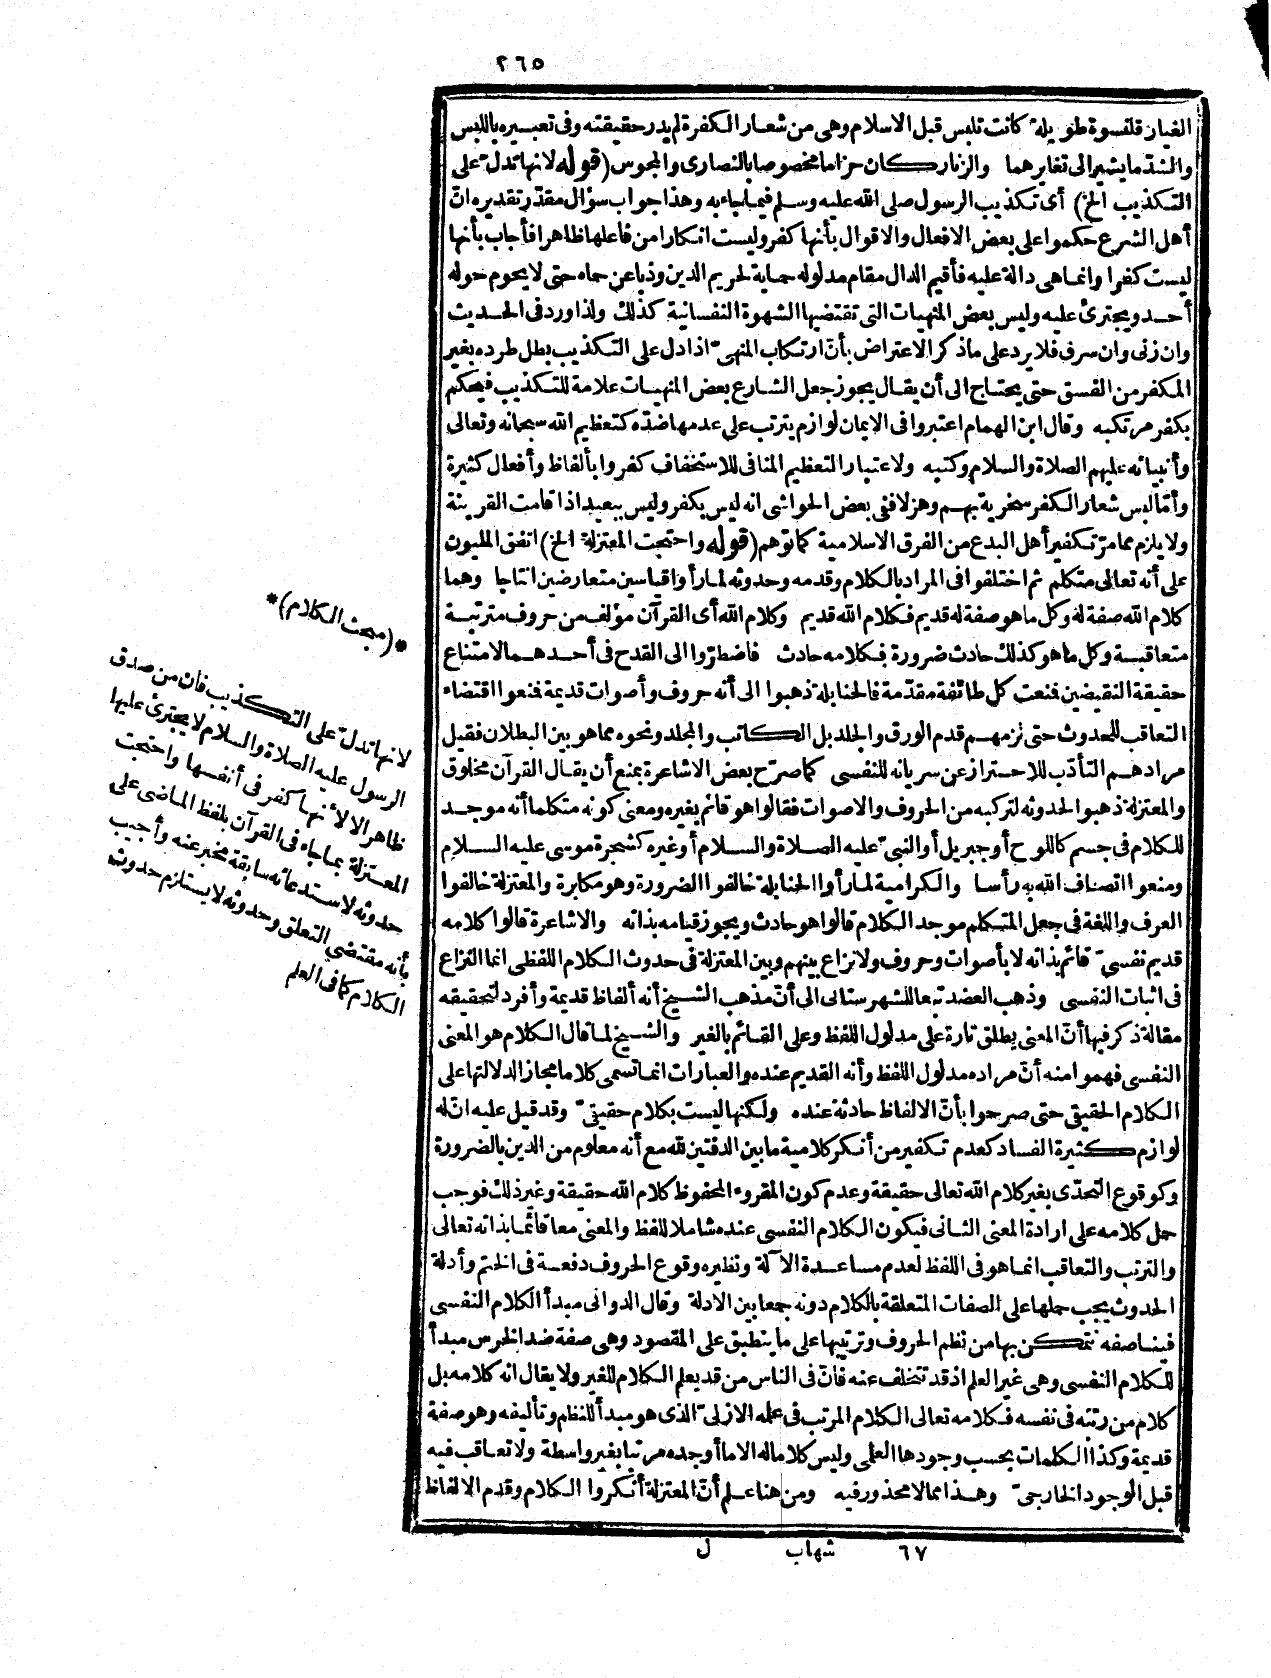 ٢٦٥
الغيار قلنسوة طويلة كانت تلبس قبل الاسلام وهى من شعار الكفرة لم يدر حقيقته وفى تعبيره باللبس
والشدّ ما يشير الى تغايرهما والزنار كان حزاما مخصوصا بالنصارى والمجوس (قوله لانها تدلّ على
التكذيب الخ) أى تكذيب الرسول صلى الله عليه وسلم فيما جاء به وهذا جواب سؤال مقدّر تقديره انّ
أهل الشرع حكموا على بعض الافعال والاقوال بأنها كفر وليست انكارا من فاعلها ظاهرا فأجاب بأنها
ليست كفرا وانما هى دالة عليه فأقيم الدال مقام مدلوله حماية لحريم الدين وذبا عن حماه حتى لا يحوم حوله
أحد ويجترئ عليه وليس بعض المنهيات التى تقتضيها الشهوة النفسانية كذلك ولذا ورد فى الحديث
وان زنى وان سرق فلا يرد على ما ذكر الاعتراض بأنّ ارتكاب المنهىّ اذا دل على التكذيب بطل طرده بغير
المكفر من الفسق حتى يحتاج الى أن يقال يجوز جعل الشارع بعض المنهيات علامة للتكذيب فيحكم
بكفر مرتكبه وقال ابن الهمام اعتبروا فى الايمان لوازم يترتب على عدمها ضدّه كتعظيم الله سبحانه وتعالى
وأنبيائه عليهم الصلاة والسلام وكتبه ولاعتبار التعظيم المنافى للاستخفاف كفروا بألفاظ وأفعال كثيرة
وأمّا لبس شعار الكفر سخرية بهم وهزلا ففى بعض الحواشى انه ليس بكفر وليس ببعيد اذا قامت القرينة
ولا يلزم مما مرّ تكفير أهل البدع من الفرق الاسلامية كما توهم (قوله واحتجت المعتزلة الخ) اتفق المليون
على أنه تعالى متكلم ثم اختلفوا فى المراد بالكلام وقدمه وحدوثه لما رأوا قياسين متعارضين انتاجا وهما
كلام الله صفة له وكل ما هو صفة له قديم فكلام الله قديم وكلام الله أى القرآن مؤلف من حروف مترتبة
متعاقبة وكل ما هو كذلك حادث ضرورة فكلامه حادث فاضطرّوا الى القدح فى أحدهما لامتناع
حقيقة النقيضين فنعت كل طائفة مقدّمة فالحنابلة ذهبوا الى أنه حروف وأصوات قديمة فنعوا اقتضاء
التعاقب للحدوث حتى لزمهم قدم الورق والجلد بل الكاتب والمجلد ونحوه مما هو بين البطلان فقيل
مرادهم التأدّب للاحتراز عن سريانه للنفسى كما صرّح بعض الاشاعرة بمنع أن يقال القرآن مخلوق
والمعتزلة ذهبوا لحدوثه لتركبه من الحروف والاصوات فقالوا هو قائم بغيره ومعنى كونه متكلما أنه موجد
للكلام فى جسم كاللوح أو جبريل أو النبىّ عليه الصلاة والسلام أو غيره كشجرة موسى عليه السلام
ومنعوا اتصاف الله به رأسا والكرامية لما رأوا الحنابلة خالفوا الضرورة وهو مكابرة والمعتزلة خالفوا
العرف واللغة فى جعل المتكلم موجد الكلام قالوا هو حادث ويجوز قيامه بذاته والاشاعرة قالوا كلامه
قديم نفسىّ قائم بذاته لا بأصوات وحروف ولا نزاع بينهم وبين المعتزلة فى حدوث الكلام اللفظى انما النزاع
فى اثبات النفسى وذهب العضد تبعا للشهرستانى الى أنّ مذهب الشيخ أنه ألفاظ قديمة وأفرد لتحقيقه
مقالة ذكر فيها أنّ المعنى يطلق تارة على مدلول اللفظ وعلى القائم بالغير والشيخ لما قال الكلام هو المعنى
النفسى فهموا منه أنّ مراده مدلول اللفظ وأنه القديم عنده والعبارات انما تسمى كلاما مجازا لدلالتها على
الكلام الحقيقى حتى صرحوا بأنّ الالفاظ حادثة عنده ولكنها ليست بكلام حقيقىّ وقد قيل عليه انّ له
لوازم كثيرة الفساد كعدم تكفير من أنكر كلامية ما بين الدفتين لله مع أنه معلوم من الدين بالضرورة
وكوقوع التحدّى بغير كلام الله تعالى حقيقة وعدم كون المقروء المحفوظ كلام الله حقيقة وغير ذلك فوجب
حمل كلامه على ارادة المعنى الثانى فيكون الكلام النفسى عنده شاملا للفظ والمعنى معا قائما بذاته تعالى
والترتب والتعاقب انما هو فى اللفظ لعدم مساعدة الآلة ونظيره وقوع الحروف دفعة فى الختم وأدلة
الحدوث يجب حملها على الصفات المتعلقة بالكلام دونه جمعا بين الادلة وقال الدوانى مبدأ الكلام النفسى
فينا صفة نتمكن بها من نظم الحروف وترتيبها على ما ينطبق على المقصود وهى صفة ضد الخرس مبدأ
للكلام النفسى وهى غير العلم اذ قد تتخلف عنه فانّ فى الناس من قد يعلم الكلام للغير ولا يقال انه كلامه بل
كلام من رتبه فى نفسه فكلامه تعالى الكلام المرتب فى علمه الازلىّ الذى هو مبدأ للنظم وتأليفه وهو صفة
قديمة وكذا الكلمات بحسب وجودها العلمى وليس كلاما له الا ما أوجده مرتبا بغير واسطة ولا تعاقب فيه
قبل الوجود الخارجىّ وهذا مما لا محذور فيه ومن هنا علم أنّ المعتزلة أنكروا الكلام وقدم الالفاظ
*(مبحث الكلام)*
لانها تدلّ على التكذيب فان من صدق
الرسول عليه الصلاة والسلام لا يجترئ عليها
ظاهرا لا لأنها كفر فى أنفسها واحتجت
المعتزلة بما جاء فى القرآن بلفظ الماضى على
حدوثه لاستدعائه سابقة مخبر عنه وأجيب
بأنه مقتضى التعلق وحدوثه لا يستلزم حدوث
الكلام كما فى العلم
٦٧ شهاب ل